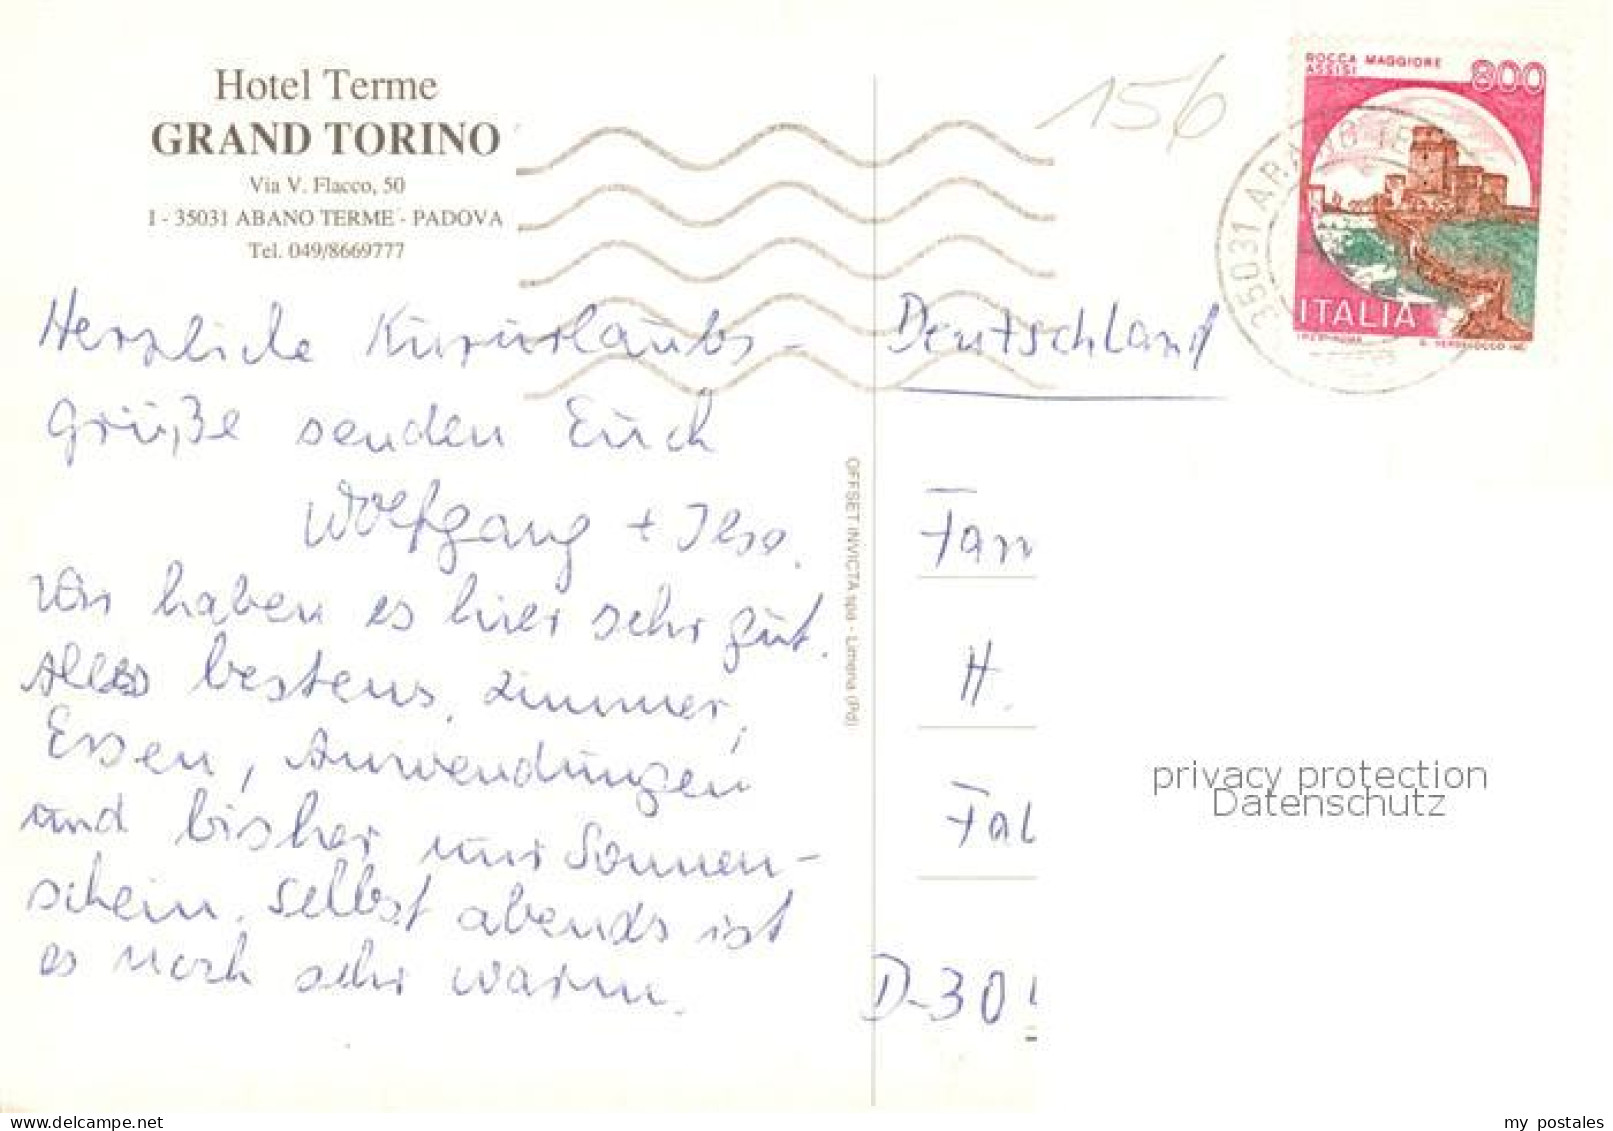 Hotel Terme
GRAND TORINO
Via V. Flacco, 50
I - 35031 ABANO TERME - PADOVA
Tel. 049/8669777
Herzliche Kurürlaubs-
Grüße senden Euch
Wolfgang + Ilse.
Wir haben es hier sehr gut.
Alles bestens, Zimmer,
Essen, Anwendungen
und bisher nur Sonnen-
schein. Selbst abends ist
es noch sehr warm.
OFFSET INVICTA spa - Limena (Pd)
156
ROCCA MAGGIORE
ASSISI
800
ITALIA
I.P.Z.S. ROMA
35031 ABANO TE
Deutschland
Fam
H.
Fal
D-30
privacy protection
Datenschutz
delcampe.net
my postales